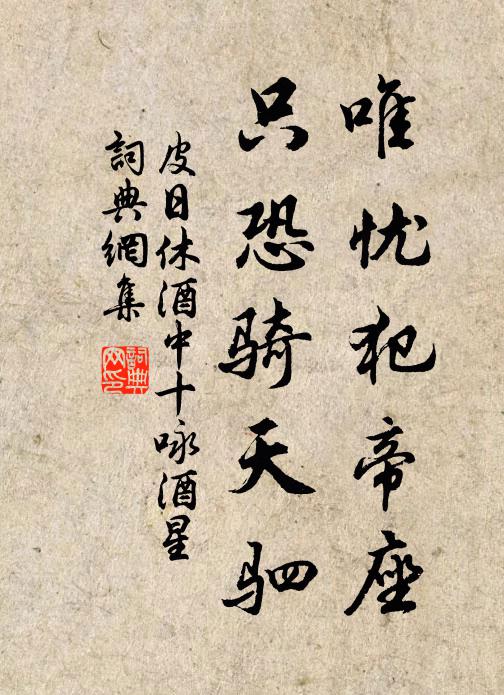 唯忧犯帝座
只恐骑天驷
皮日休酒中十咏酒星
詞典網集
詞典
网印